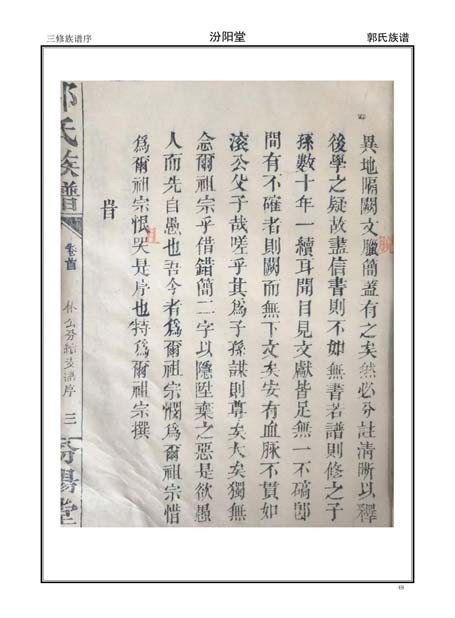 三修族谱序
汾阳堂
郭氏族谱
異地隔闕文臘簡蓋有之矣然必分註清晰以釋
腕
後學之疑故盡信書則不如無書若譜則修之子
孫數十年一續耳聞目見文獻皆足無一不確即
間有不確者則闕而無下文矣安有血脉不貫如
滾公父子哉嗟乎其為子孫謀則尊矣大矣獨無
念爾祖宗乎借錯簡二字以隱陞棄之惡是欲愚
人而先自愚也吾今者為爾祖宗憫為爾祖宗惜
為爾祖宗恨哭是序也特為爾祖宗撰
旹
郭氏族譜
卷首
分結支譜序
三
汾陽堂